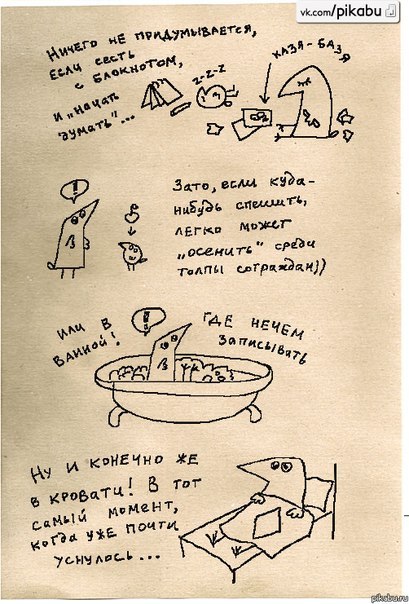 vk.com/pikabu
Ничего не придумывается,
если сесть
с блокнотом,
и „начать
думать"...
z-z-z
казя-базя
!
Зато, если куда-
нибудь спешить,
легко может
„осенить" среди
толпы сограждан))
или в
ванной!
!
где нечем
записывать
Ну и конечно же
в кровати! В тот
самый момент,
когда уже почти
уснулось...
pikabu.ru